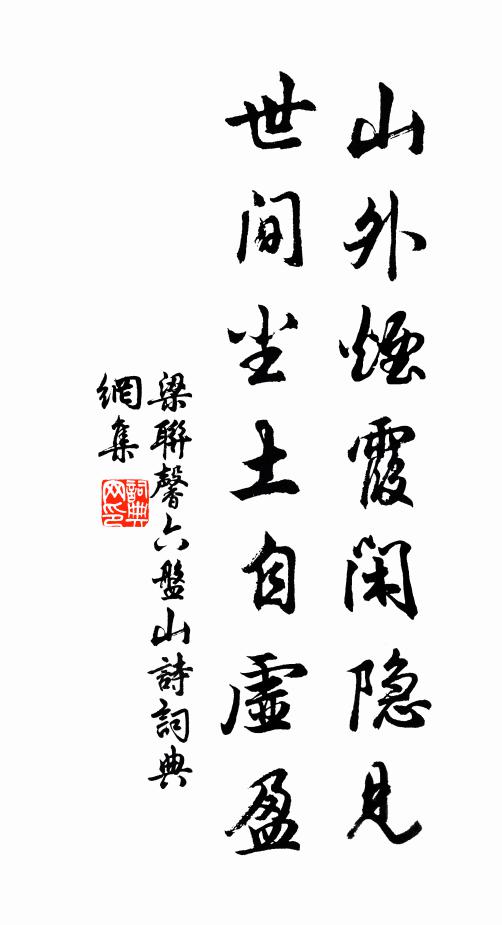 山外煙霞閑隐見
世间尘土自虛盈
梁聯馨六盤山詩詞典
網集
詞典
网印